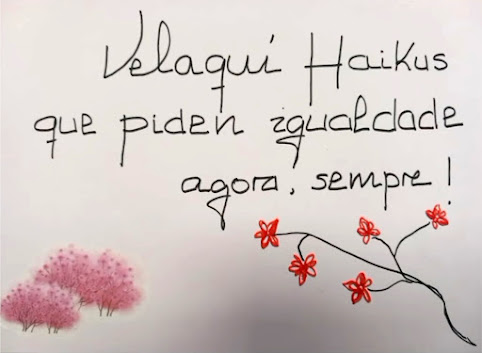 Velaquí Haikus
que piden igualdade
agora, sempre!